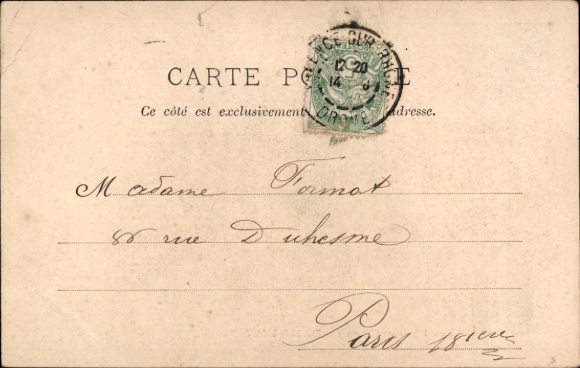 CARTE PO E
Ce côté est exclusivement dresse.
VALENCE SUR RHONE
12 20
14 8
DROME
Madame Format
86 rue Duhesme
Paris 18